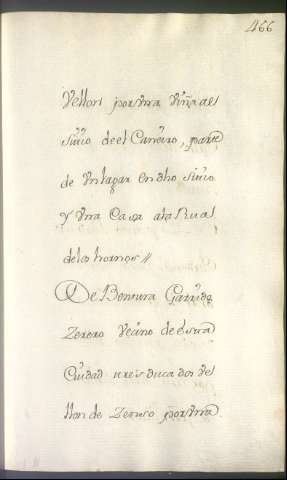 466
Vellon por vna viña al
sitio de el Carnero, parte
de vn lagar en dho sitio
y vna Casa a la Rua
de los hornos //
De Bentura Garrido
Zerero Vecino de esta
Ciudad tres ducados de
llon de Zenso por vna